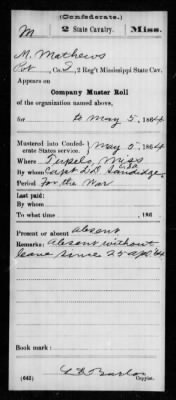 (Confederate.)
M 2 State Cavalry. Miss.
M. Mathews
Pvt, Co. 2 Reg't Mississippi State Cav.
Appears on
Company Muster Roll
of the organization named above,
for to May 5, 1864
Mustered into Confed-
erate States service. May 5, 1864
Where Tupelo, Miss
By whom Capt
Period For the War
Last paid:
By whom
To what time , 186
Present or absent Absent
Remarks: Absent without
leave since 25 apl. 64
Book mark:
(642) Copyist.